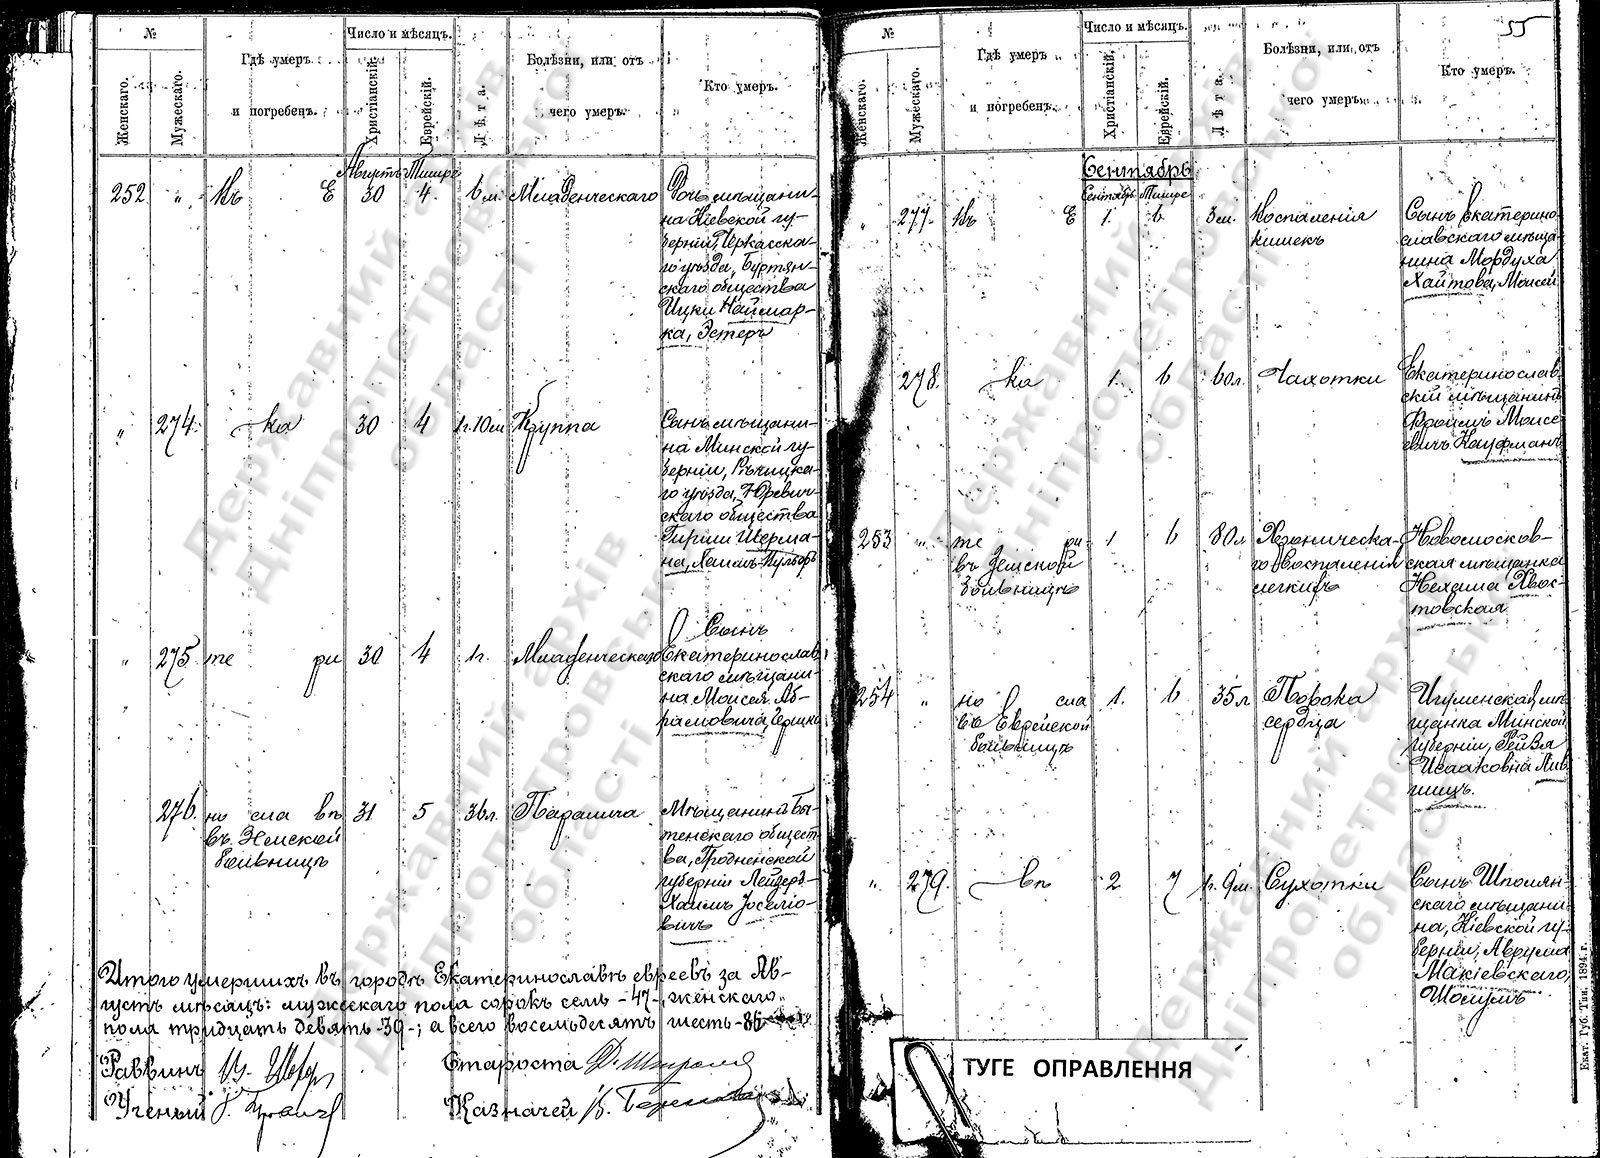 №
Число и мѣсяцъ.
Женскаго.
Мужескаго.
Гдѣ умеръ
и погребенъ.
Христіанскій.
Еврейскій.
Лѣта.
Болѣзни, или отъ
чего умеръ.
Кто умеръ.
Августъ
252 " Въ Е 30 4 6 м. Младенческаго
Дочь мѣщани-
на Кіевской гу-
берніи, Черкасска-
го уѣзда,
скаго общества
Ицки Наймар-
ка, Эстеръ
" 274 ка 30 4 1г.10м Круппа
Сынъ мѣщани-
на Минской гу-
берніи, Рѣчицка-
го уѣзда, Юревич-
скаго общества
Шерма-
на,
" 275 те ри 30 4 1г. Младенческаго
Сынъ
Екатеринослав-
скаго мѣщани-
на Моисея Аб-
рамовича, Гершко
276. но сла вѣ 31 5 36л. Паралича
въ Земской
больницѣ
Мѣщанинъ Бы-
тенскаго общест-
ва, Гродненской
губерніи Лейзеръ-
Хаимъ Іоселіо-
вичъ
Итого умершихъ въ городѣ Екатеринославѣ евреевъ за Ав-
густъ мѣсяцъ: мужескаго пола сорокъ семь -47-, женскаго
пола тридцать девять -39-; а всего восемьдесятъ шесть -86-
Раввинъ
Староста
Ученый
Казначей
55
№
Число и мѣсяцъ.
Женскаго.
Мужескаго.
Гдѣ умеръ
и погребенъ.
Христіанскій.
Еврейскій.
Лѣта.
Болѣзни, или отъ
чего умеръ.
Кто умеръ.
Сентябрь
Сентябрь
" 277. Въ Е 1. 6 3м. Воспаленія
кишекъ
Сынъ Екатерино-
славскаго мѣща-
нина Мордуха
Хайтова, Моисей
278. ка 1. 6 60л. Чахотки
Екатеринослав-
скій мѣщанинъ
Фроимъ Моисе-
евичъ Кауфманъ
253 " те ри 1 6 80л Хроническа-
го воспаленія
легкихъ
въ Земской
больницѣ
Новомосков-
ская мѣщанка
Нехама Хвос-
товская
254 " но сла 1. 6 35л Порока
сердца
въ Еврейской
больницѣ
Игуменская мѣ-
щанка Минской
губерніи, Рейзя
Исааковна Лив-
шицъ.
" 279. вѣ 2 7 1г. 9м. Сухотки
Сынъ Шполян-
скаго мѣщани-
на, Кіевской гу-
берніи, Аврума
Макіевскаго,
Шолумъ
Екат. Губ. Тип. 1894 г.
ТУГЕ ОПРАВЛЕННЯ
Державний архів
Дніпропетровської
області